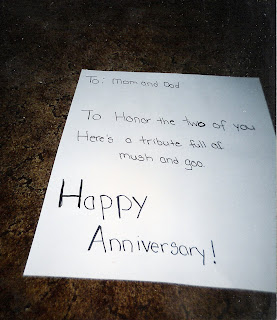 To: Mom and Dad
To Honor the two of you
Here's a tribute full of
mush and goo.
Happy
Anniversary!